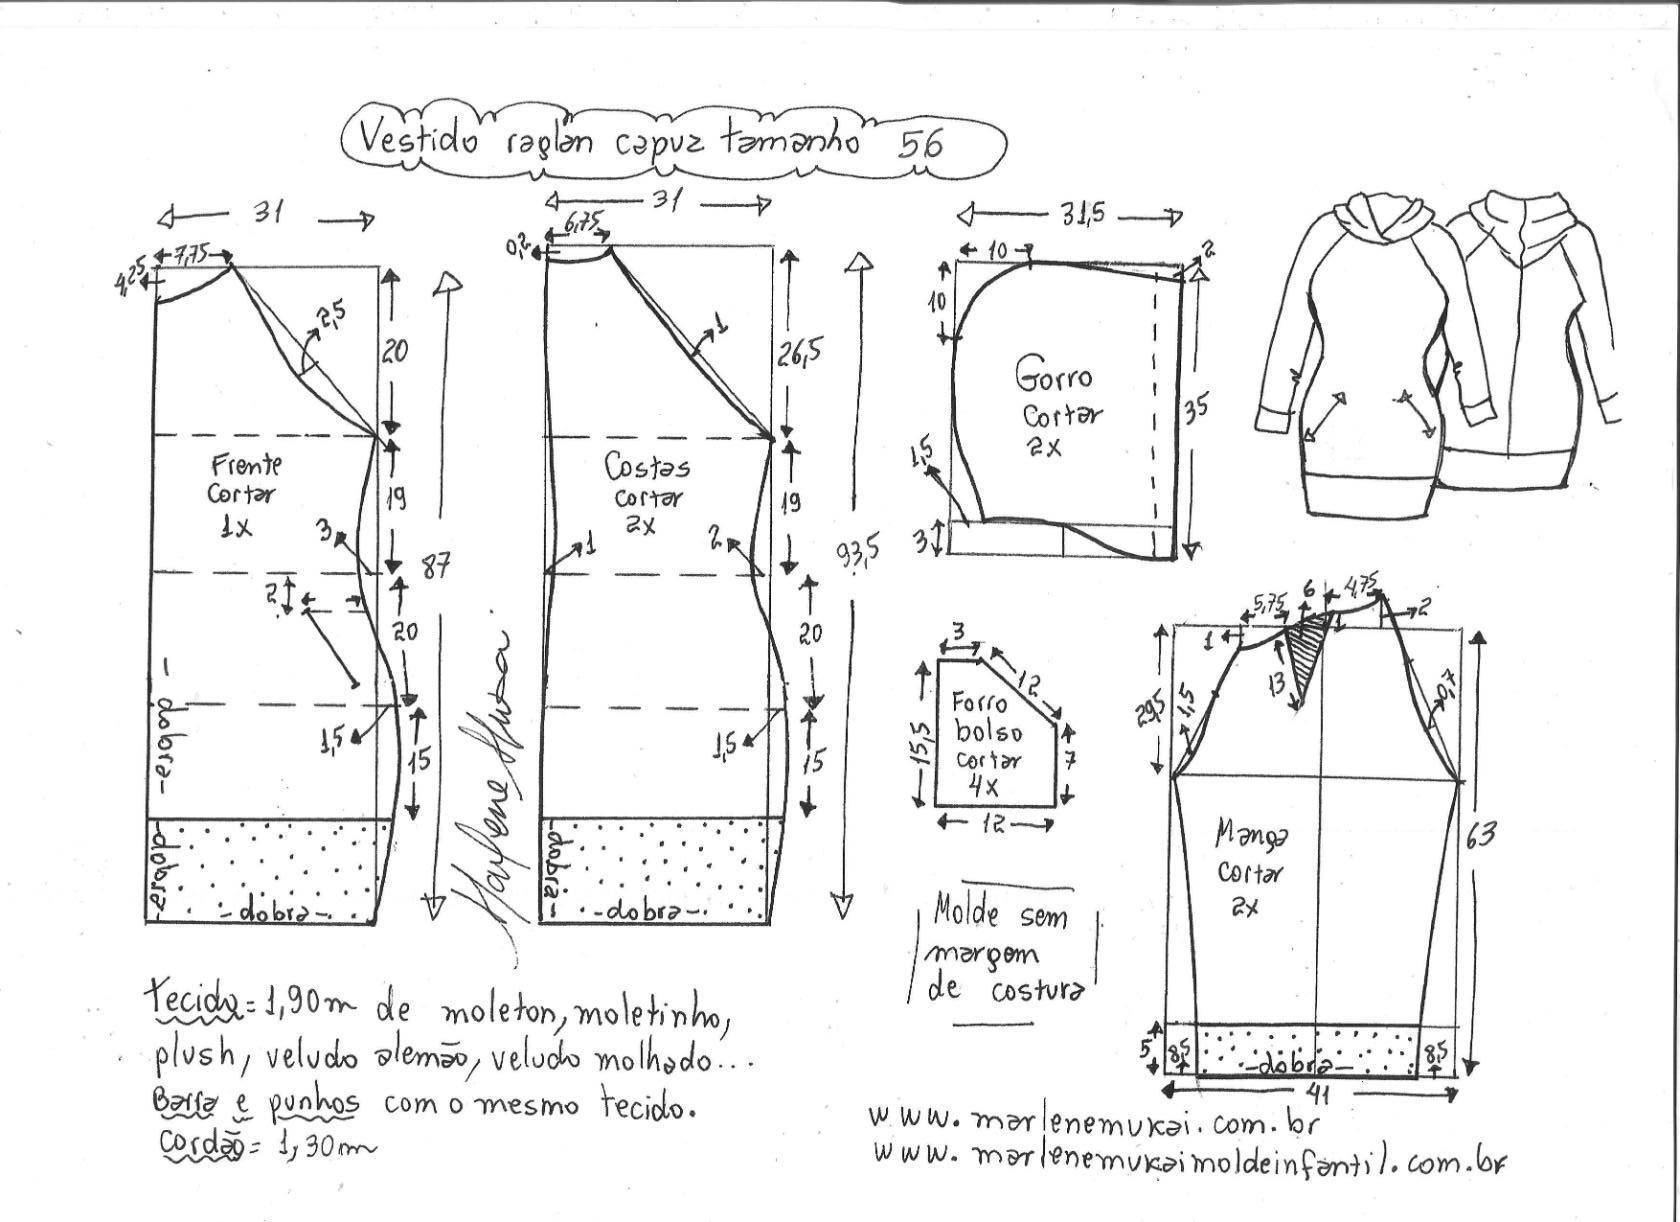 Vestido raglan capuz tamanho 56
31
7,75
4,25
2,5
20
Frente
cortar
1x
19
3
87
2
20
1,5
15
- dobra -
- dobra -
- dobra -
31
6,75
0,2
1
26,5
Costas
cortar
2x
19
1
2
93,5
20
1,5
15
- dobra -
- dobra -
Marlene Mukai
31,5
10
2
10
Gorro
cortar
2x
35
1,5
3
3
12
Forro
bolso
cortar
4x
15,5
7
12
5,75
6
4,75
1
1
2
13
29,5
1,5
0,7
Manga
cortar
2x
63
5
8,5
- dobra -
8,5
41
Molde sem
margem
de costura
tecido = 1,90m de moleton, moletinho,
plush, veludo alemão, veludo molhado...
Barra e punhos com o mesmo tecido.
cordão = 1,30m
www.marlenemukai.com.br
www.marlenemukaimoldeinfantil.com.br